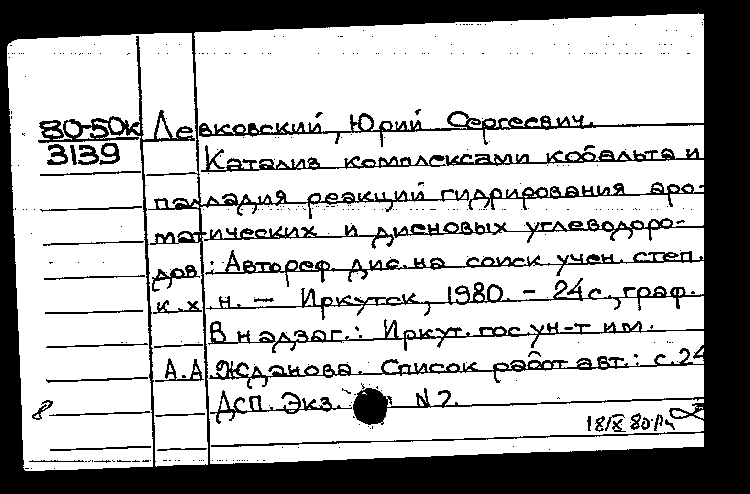 80-50к Левковский, Юрий Сергеевич.
3139 Катализ комплексами кобальта и
палладия реакций гидрирования аро-
матических и диеновых углеводоро-
дов: Автореф. дис. на соиск. учен. степ.
к.х.н. - Иркутск, 1980. - 24 с., граф.
В надзаг.: Иркут. гос. ун-т им.
А.А. Жданова. Список работ авт.: с. 24
ДСП. Экз. N 7.
8
18/X 80